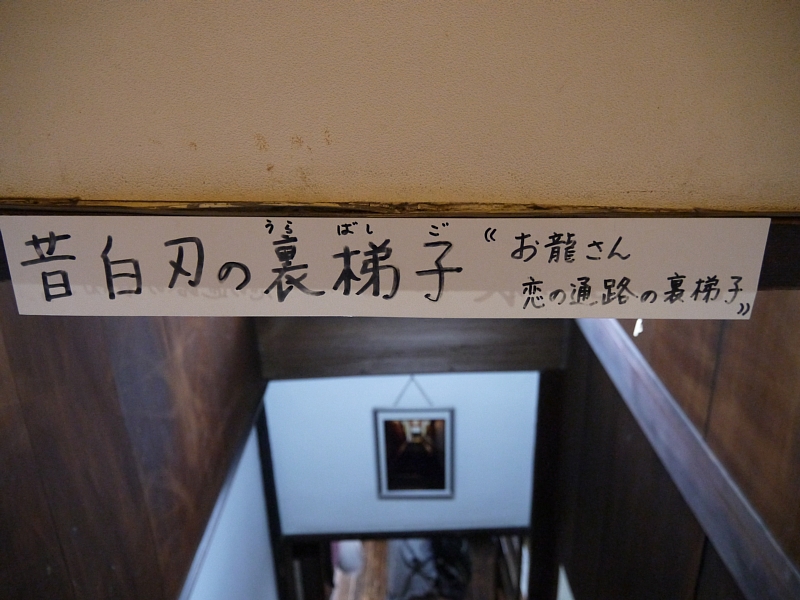 昔白刃の裏梯子
うら ばし ご
“お龍さん
恋の通路の裏梯子”